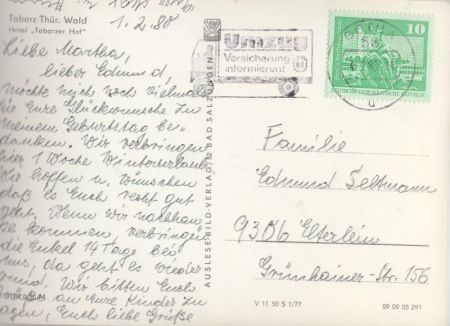 Tabarz Thür. Wald
Hotel „Tabarzer Hof"
1.2.80
Liebe Martha,
lieber Edmund,
möchte mich noch vielmals
für Eure Glückwünsche zu
meinem Geburtstag be-
danken. Wir verbringen
hier 1 Woche Winterurlaub
Wir hoffen u. wünschen
daß es Euch recht gut
geht. Wenn wir nachhau
se kommen, verbringen
die Enkel 14 Tage bei
uns, da geht es wieder
rund. Wir bitten Euch
an Eure Kinder zu
sagen, Euch liebe Grüße
AUSLESE-BILD-VERLAG BAD SALZUNGEN
Umzug
Versicherung
informieren!
10
DEUTSCHE DEMOKRATISCHE REPUBLIK
Familie
Edmund Teltmann
9306 Elterlein
Grünhainer-Str. 156
V 11 50 S 1/77
09 09 03 291